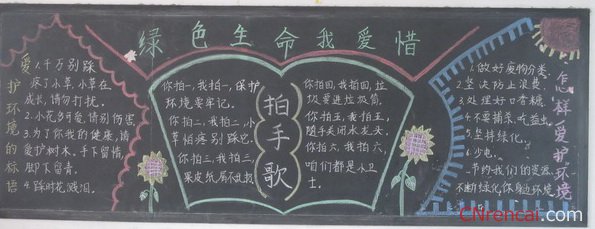 绿色生命我爱惜
爱护环境的标语
1.千万别踩
疼了小草,小草在
成长,请勿打扰。
2.小花多可爱,请别伤害
3.为了你我的健康,请
爱护树木。手下留情,
脚下留青。
4.踩时花溅泪。
拍手歌
你拍一,我拍一,保护
环境要牢记。
你拍二,我拍二,小
草怕疼别踩它。
你拍三,我拍三,
果皮纸屑不乱扔
你拍四,我拍四,垃
圾要进垃圾筒。
你拍五,我拍五,
随手关闭水龙头。
你拍六,我拍六,
咱们都是小卫
士。
怎样爱护环境
1.做好废物分类.
2.坚决防止浪费.
3.处理好口香糖.
4.不要捕杀,吃益虫.
5.坚持绿化.
6.少电.
节约我们的资源
不断绿化,你身边环境
CNrencai.com